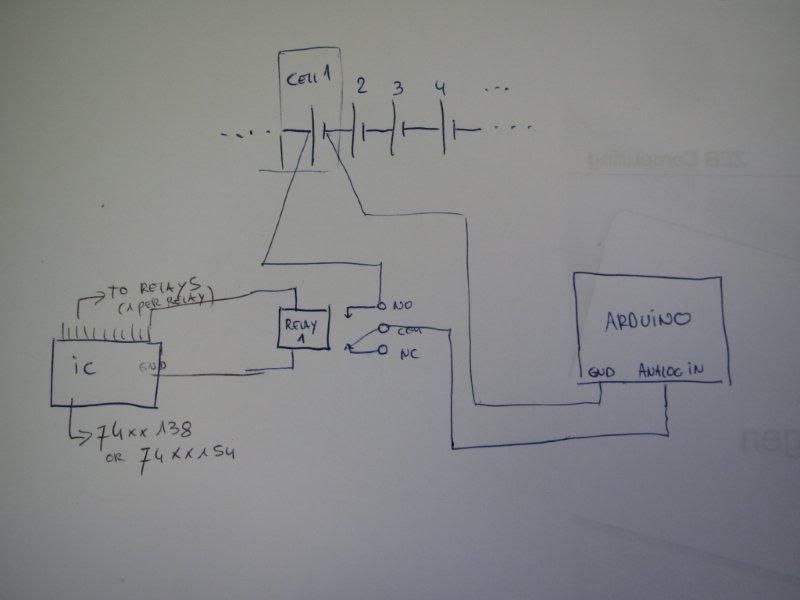 CELL 1
2
3
4
TO RELAYS
(1 PER RELAY)
NO
COM
NC
RELAY
1
ARDUINO
GND
ANALOG IN
iC
GND
74xx138
OR 74xx154
ZEB Computing
gen